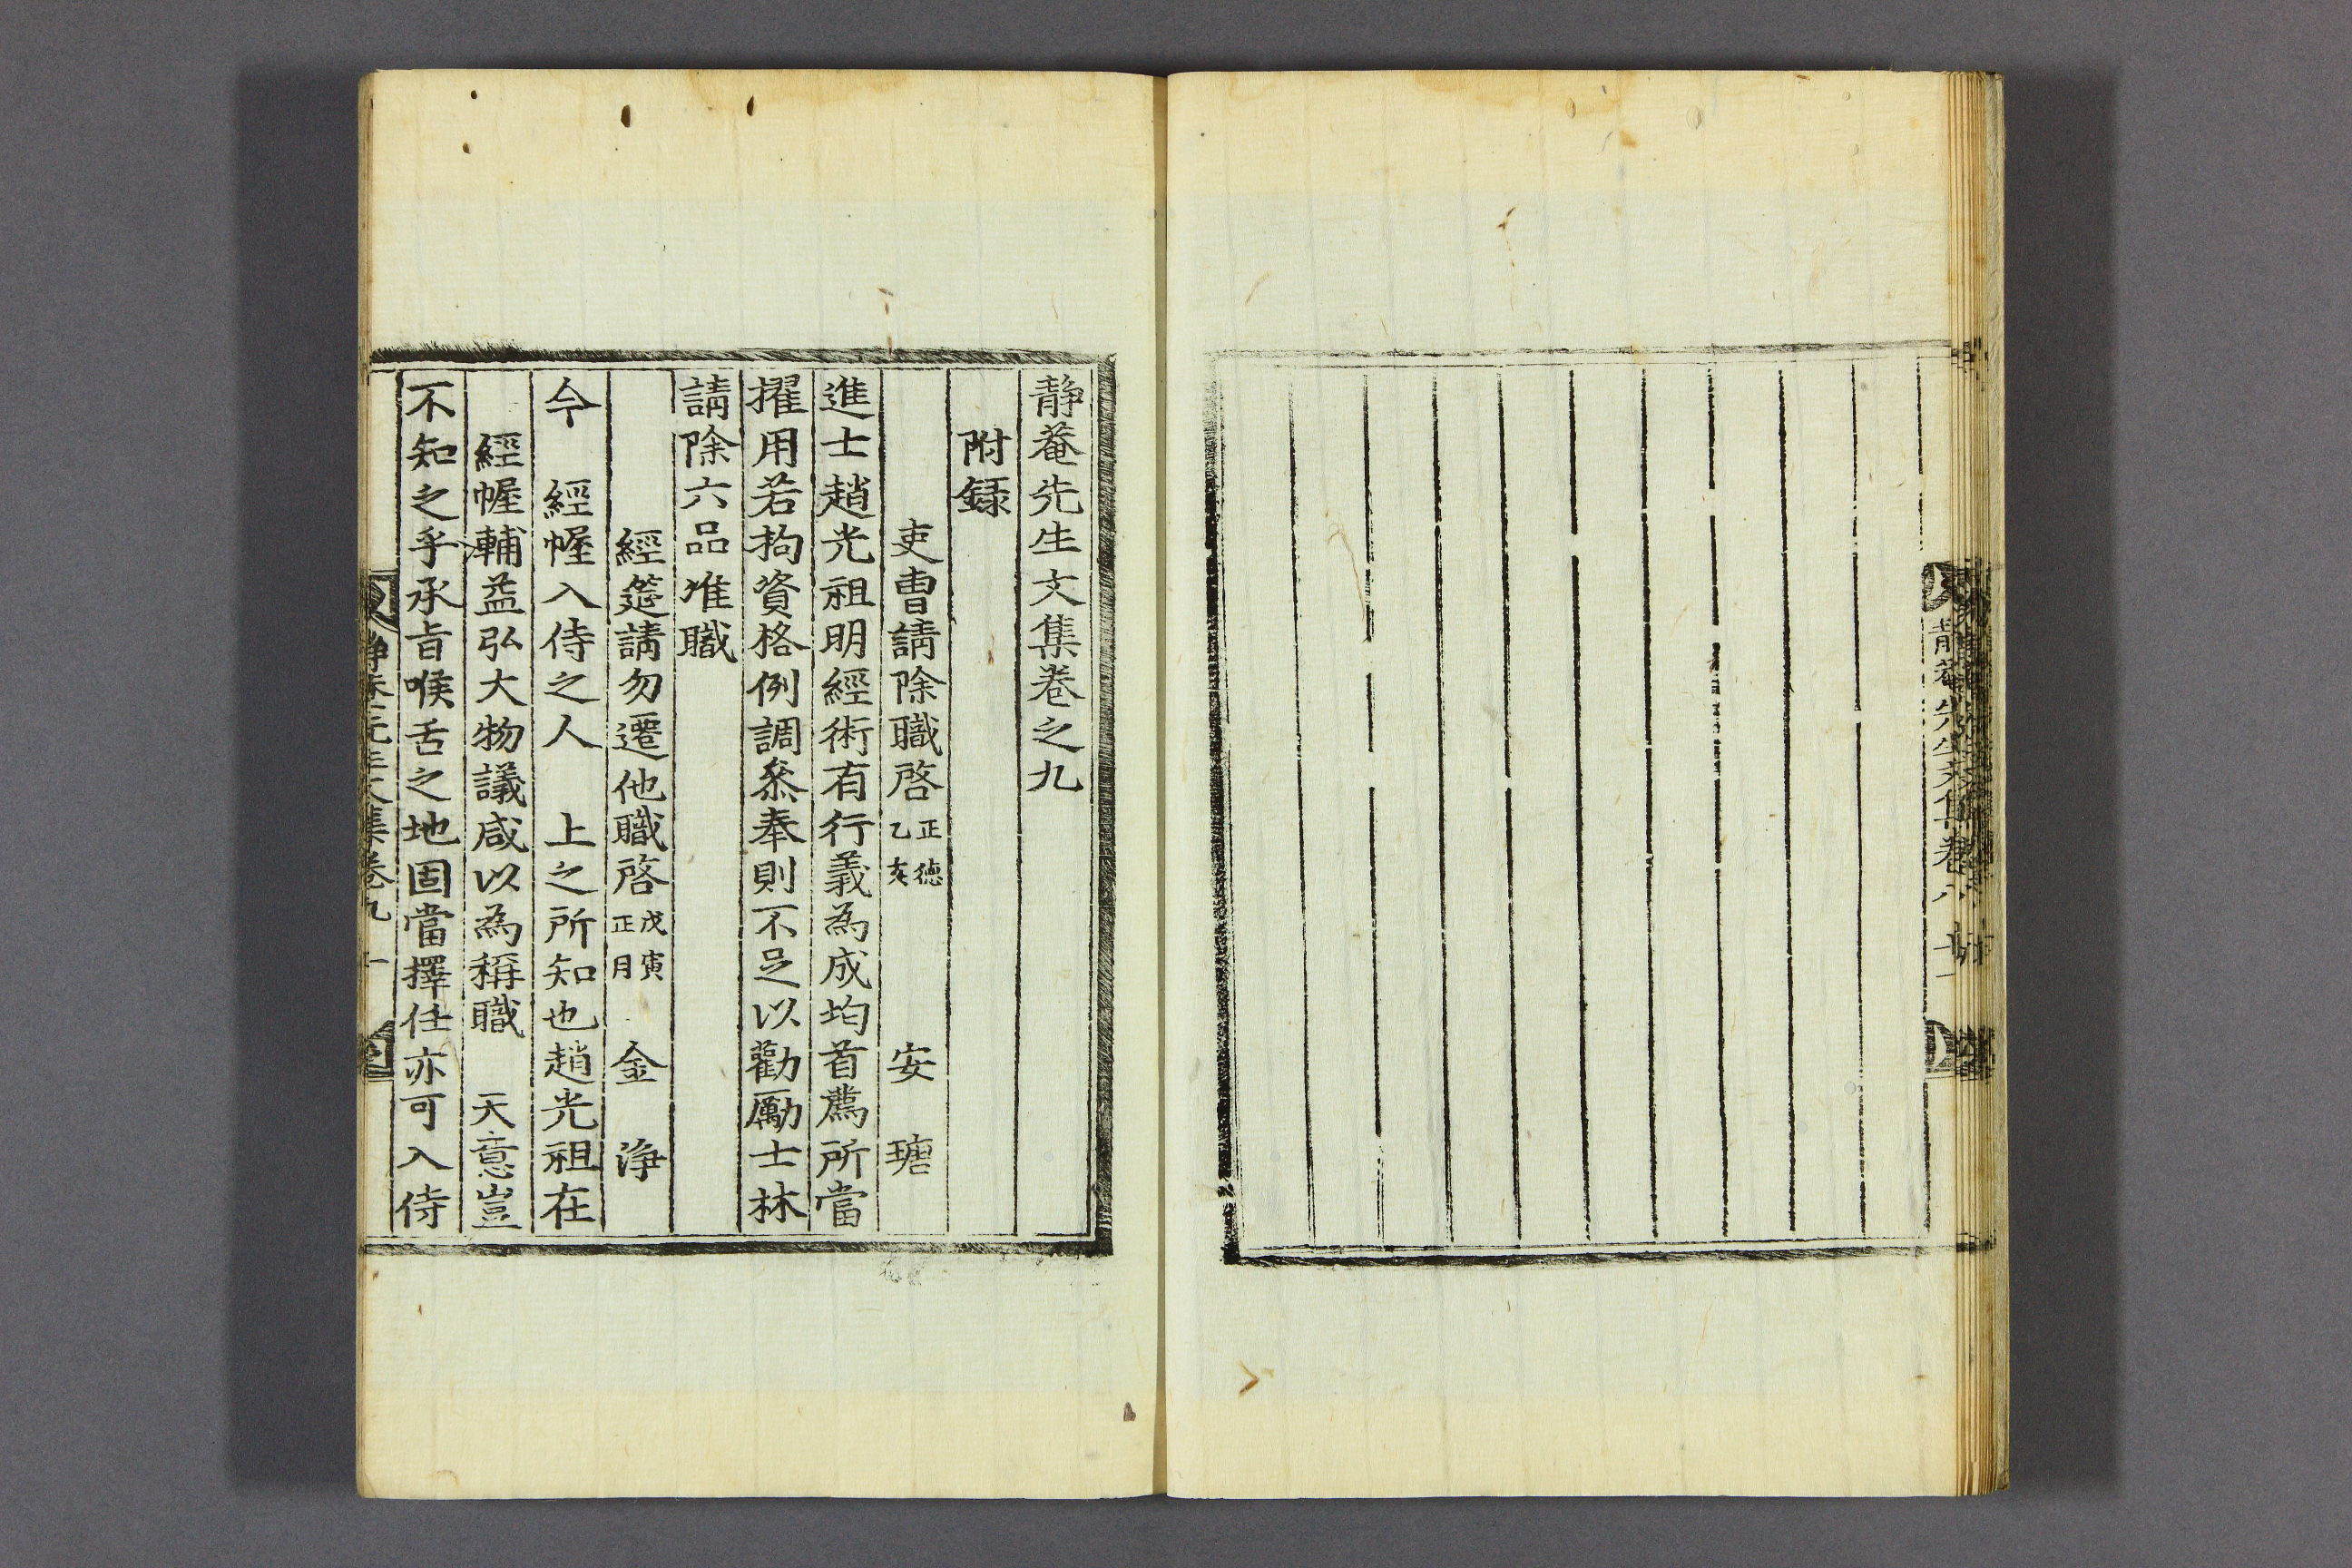 靜菴先生文集卷之九
附錄
吏曹請除職啓 正德乙亥 安 瑭
進士趙光祖明經術有行義為成均首薦所當
擢用若拘資格例調叅奉則不足以勸勵士林
請除六品准職
經筵請勿遷他職啓 戊寅正月 金 淨
今 經幄入侍之人 上之所知也趙光祖在
經幄輔益弘大物議咸以為稱職 天意豈
不知之乎承旨喉舌之地固當擇任亦可入侍